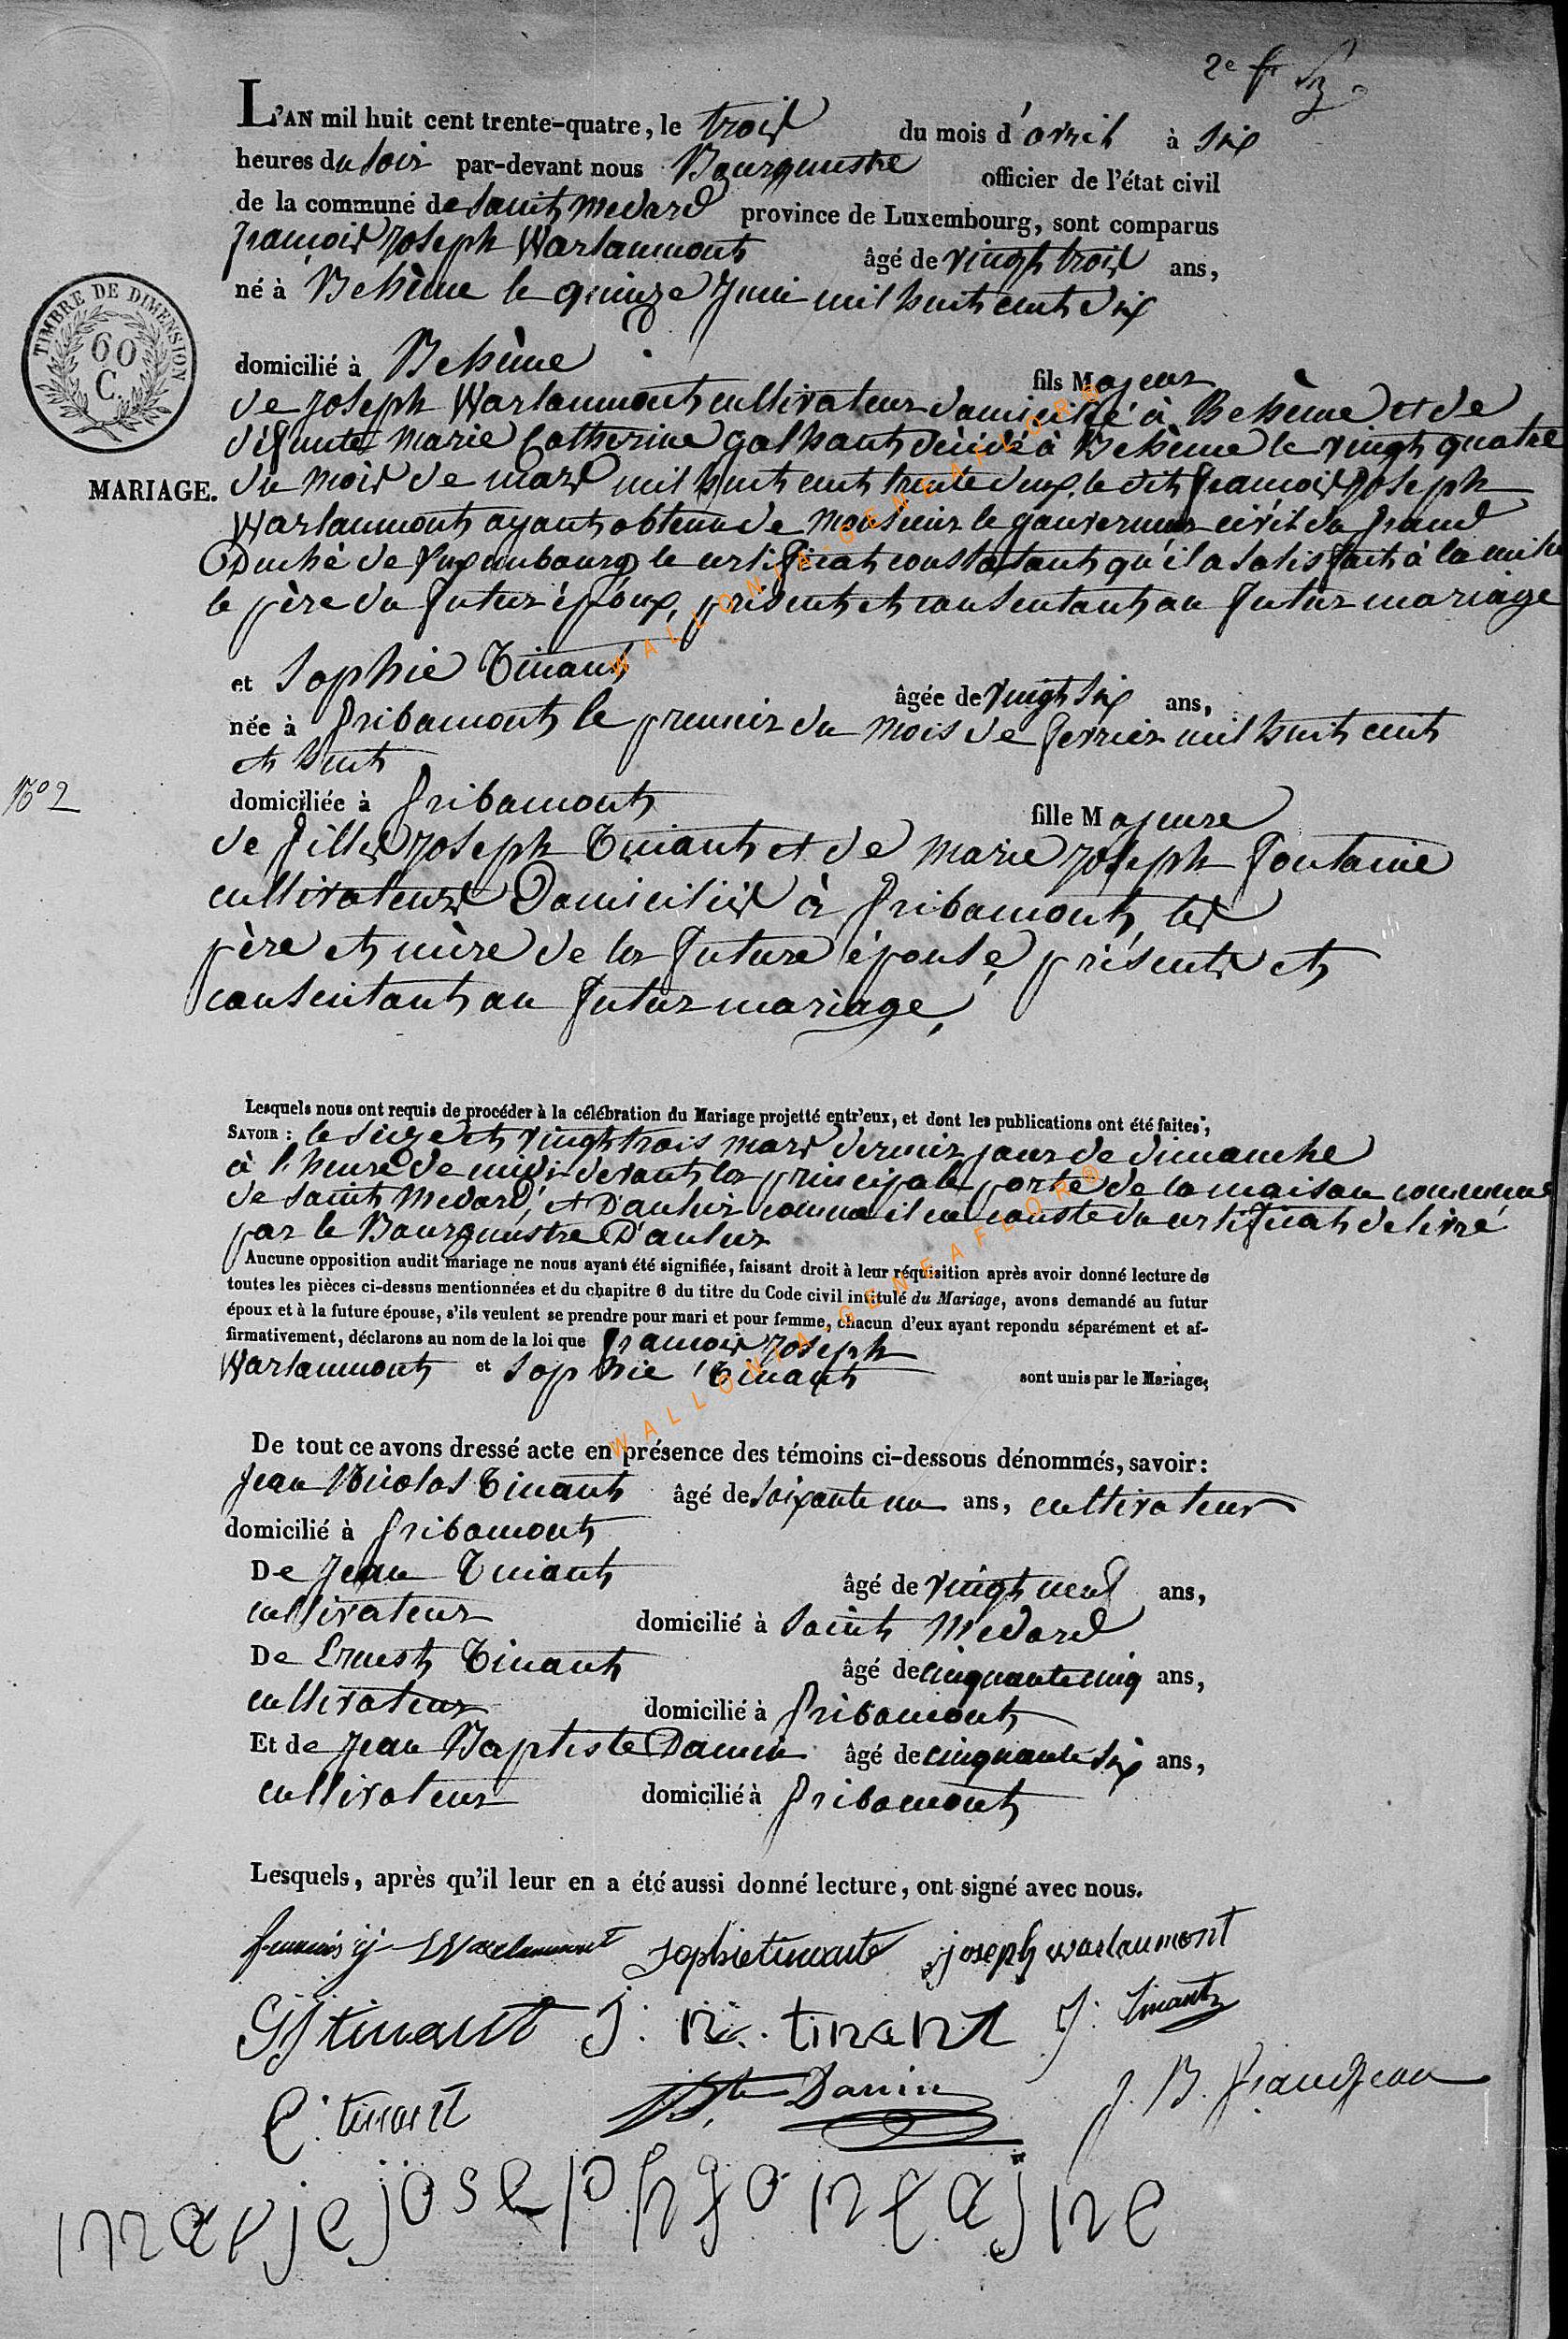 2e
L'AN mil huit cent trente-quatre, le trois du mois d'avril à six
heures du soir par-devant nous Bourgmestre officier de l'état civil
de la commune de Saint Medard province de Luxembourg, sont comparus
François Joseph Warlaumont âgé de vingt trois ans,
né à Behême le quinze Juin mil huit cent dix
TIMBRE DE DIMENSION
60
C.
domicilié à Behême fils Majeur
de Joseph Warlaumont cultivateur domicilié à Behême et de
défunte Marie Catherine galhaut décédé à Behême le vingt quatre
MARIAGE.
du mois de mars mil huit cent trente deux, le dit François Joseph
Warlaumont ayant obtenu de Monsieur le gouverneur civil du grand
Duché de Luxembourg le certificat constatant qu'il a satisfait à la
le père du futur époux, présent et consentant au futur mariage
et Sophie Tinant âgée de vingt six ans,
née à gribamont le premier du mois de fevrier mil huit cent
et huit
No 2
domiciliée à gribamont fille Majeure
de gilles Joseph Tinant et de marie Joseph fontaine
cultivateurs Domiciliés à gribamont, les
père et mère de la future épouse, présents et
consentant au futur mariage,
Lesquels nous ont requis de procéder à la célébration du Mariage projetté entr'eux, et dont les publications ont été faites;
SAVOIR : le seize et vingt trois mars dernier jour de dimanche
à l'heure de midi devant la principale porte de la maison commune
de Saint Medard, et D'anlier comme il en conste du certificat delivré
par le Bourgmestre D'anlier
Aucune opposition audit mariage ne nous ayant été signifiée, faisant droit à leur réquisition après avoir donné lecture de
toutes les pièces ci-dessus mentionnées et du chapitre 6 du titre du Code civil intitulé du Mariage, avons demandé au futur
époux et à la future épouse, s'ils veulent se prendre pour mari et pour femme, chacun d'eux ayant repondu séparément et af-
firmativement, déclarons au nom de la loi que François Joseph
Warlaumont et Sophie Tinant sont unis par le Mariage;
De tout ce avons dressé acte en présence des témoins ci-dessous dénommés, savoir:
Jean Nicolas Tinant âgé de soixante un ans, cultivateur
domicilié à gribamont
De Jean Tinant âgé de vingt neuf ans,
cultivateur domicilié à Saint Medard
De Ernest Tinant âgé de cinquante cinq ans,
cultivateur domicilié à gribamont
Et de Jean Baptiste Damin âgé de cinquante six ans,
cultivateur domicilié à gribamont
Lesquels, après qu'il leur en a été aussi donné lecture, ont signé avec nous.
françois j Warlaumont sophie tinant joseph warlaumont
GJ tinant J: N. tinant J: Tinant
E: tinant Bte Damin J. B. grandjean
marje joseph fontajne
WALLONIA-GENEAFLOR®
WALLONIA-GENEAFLOR®